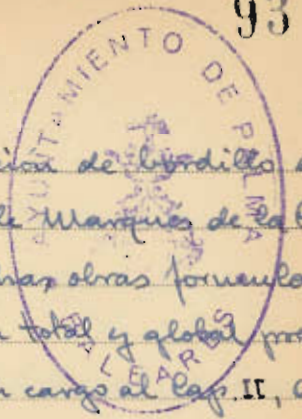 93
AYUNTAMIENTO DE PALMA
BALEARES
de bordillo
de Marques de la
obras formulo
total y global
cargo al Cap. II,